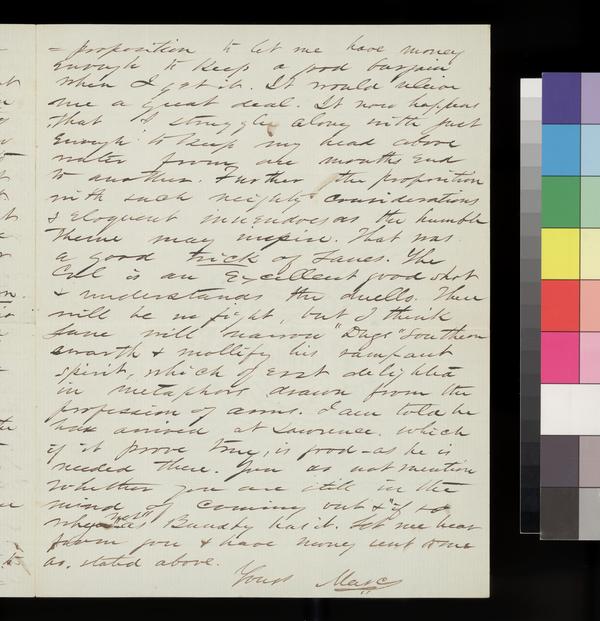 = proposition to let me have money
enough to keep a good bargain
when I get it. It would relieve
me a great deal. It now happens
that I struggle along with just
enough to keep my head above
water from one months end
to another. Further the proposition
with such weighty considerations
& Eloquent inuendoes as the humble
theme may inspire. That was
a good trick of Lanes. The
Col is an Excellent good shot
& understands the duello. There
will be no fight, but I think
Lane will narrow "Dugs" Southern
swarth & mollify his rampant
spirit, which of erst delighted
in metaphors drawn from the
profession of arms. I am told he
has arrived at Lawrence. which
if it prove true, is good - as he is
needed there. You do not mention
whether you are still in the
mind of coming out & "if so
why not" as Bundy has it. Let me hear
from you & have money sent to me
as, stated above.
Yours Marc